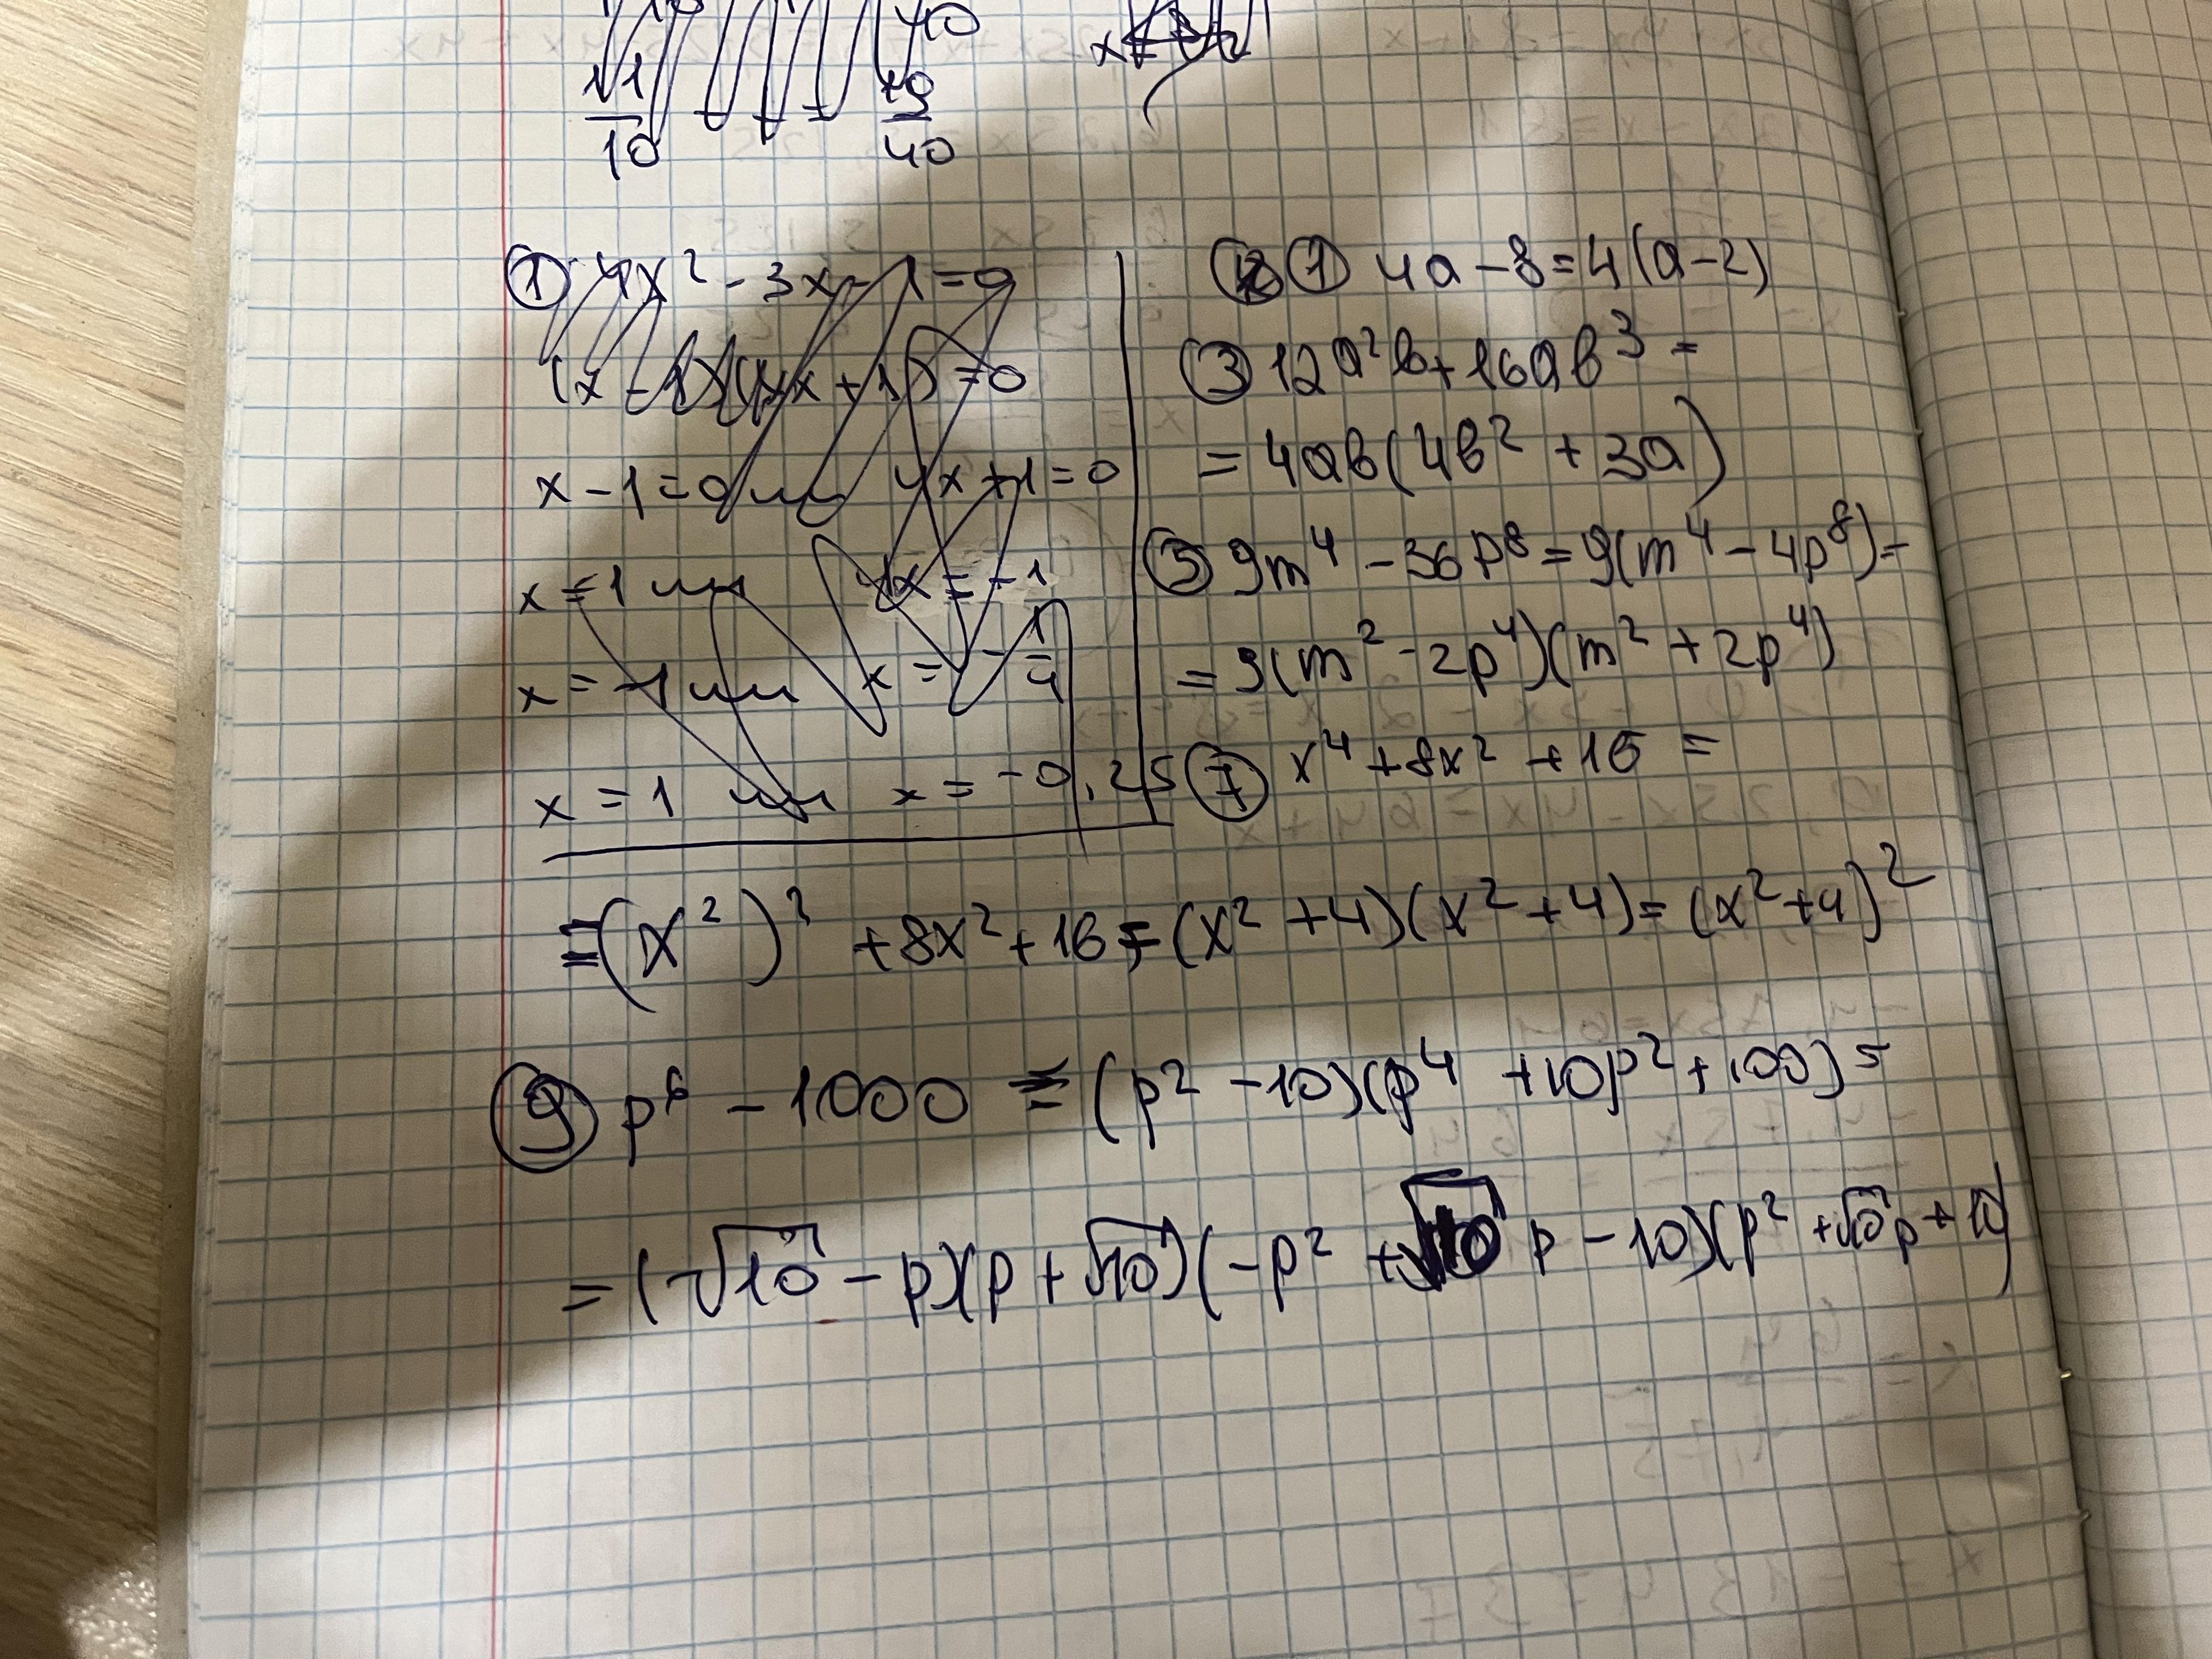 10
11/10 = 79/40
① 4x² - 3x - 1 = 0
(x - 1)(4x + 1) = 0
x - 1 = 0 или 4x + 1 = 0
x = 1 или 4x = -1
x = -1 или x = -1/4
x = 1 или x = -0,25
① 4a - 8 = 4(a - 2)
③ 12a²b + 16ab³ =
= 4ab(4b² + 3a)
⑤ 9m⁴ - 36p⁸ = 9(m⁴ - 4p⁸) =
= 9(m² - 2p⁴)(m² + 2p⁴)
⑦ x⁴ + 8x² + 16 =
= (x²)² + 8x² + 16 = (x² + 4)(x² + 4) = (x² + 4)²
⑨ p⁶ - 1000 = (p² - 10)(p⁴ + 10p² + 100) =
= (√10 - p)(p + √10)(-p² + √10 p - 10)(p² + √10 p + 10)